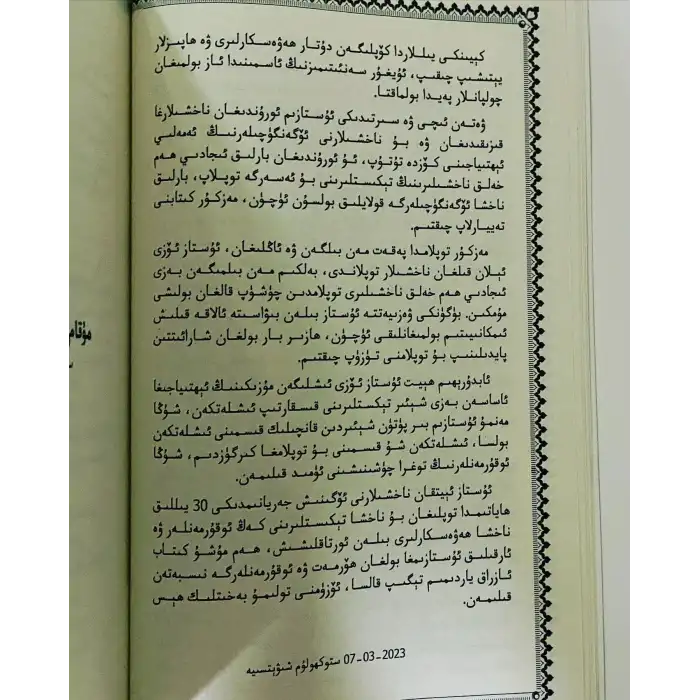 كېيىنكى يىللاردا كۆپلىگەن دۇتار ھەۋەسكارلىرى ۋە ھاپىزلار
يېتىشىپ چىقىپ، ئۇيغۇر سەنئىتىمىزنىڭ ئاسمىنىدا ئاز بولمىغان
چولپانلار پەيدا بولماقتا.
ۋەتەن ئىچى ۋە سىرتىدىكى ئۇستازىم ئورۇندىغان ناخشىلارغا
قىزىقىدىغان ۋە بۇ ناخشىلارنى ئۆگەنگۈچىلەرنىڭ ئەمەلىي
ئېھتىياجىنى كۆزدە تۇتۇپ، ئۇ ئورۇندىغان بارلىق ئىجادىي ھەم
خەلق ناخشىلىرىنىڭ تېكىستلىرىنى بۇ ئەسەرگە توپلاپ، بارلىق
ناخشا ئۆگەنگۈچىلەرگە قولايلىق بولسۇن ئۈچۈن، مەزكۇر كىتابنى
تەييارلاپ چىقتىم.
مەزكۇر توپلامدا پەقەت مەن بىلگەن ۋە ئاڭلىغان، ئۇستاز ئۆزى
ئېلان قىلغان ناخشىلار توپلاندى، بەلكىم مەن بىلمىگەن بەزى
ئىجادىي ھەم خەلق ناخشىلىرى توپلامدىن چۈشۈپ قالغان بولىشى
مۇمكىن. بۈگۈنكى ۋەزىيەتتە ئۇستاز بىلەن بىۋاسىتە ئالاقە قىلىش
ئىمكانىيىتىم بولمىغانلىقى ئۈچۈن، ھازىر بار بولغان شارائىتتىن
پايدىلىنىپ بۇ توپلامنى تۈزۈپ چىقتىم.
ئابدۇرېھىم ھېيت ئۇستاز ئۆزى ئىشلىگەن مۇزىكىنىڭ ئېھتىياجىغا
ئاساسەن بەزى شېئىر تېكىستلىرىنى قىسقارتىپ ئىشلەتكەن، شۇڭا
مەنمۇ ئۇستازىم بىر پۈتۈن شېئىردىن قانچىلىك قىسمىنى ئىشلەتكەن
بولسا، ئىشلەتكەن شۇ قىسمىنى بۇ توپلامغا كىرگۈزدىم، شۇڭا
ئوقۇرمەنلەرنىڭ توغرا چۈشىنىشىنى ئۈمىد قىلىمەن.
ئۇستاز ئېيتقان ناخشىلارنى ئۆگىنىش جەريانىمدىكى 30 يىللىق
ھاياتىمدا توپلىغان بۇ ناخشا تېكىستلىرىنى كەڭ ئوقۇرمەنلەر ۋە
ناخشا ھەۋەسكارلىرى بىلەن ئورتاقلىشىش، ھەم مۇشۇ كىتاب
ئارقىلىق ئۇستازىمغا بولغان ھۆرمەت ۋە ئوقۇرمەنلەرگە نىسبەتەن
ئازراق ياردىمىم تېگىپ قالسا، ئۆزۈمنى تولىمۇ بەختلىك ھېس
قىلىمەن.
07-03-2023 ستوكھولۇم شىۋېتسىيە